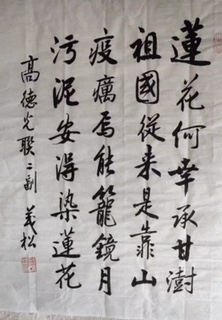 蓮花何幸承甘澍
祖國從来是靠山
疫癘焉能籠鏡月
污泥安得染蓮花
高德光聯二副 義松